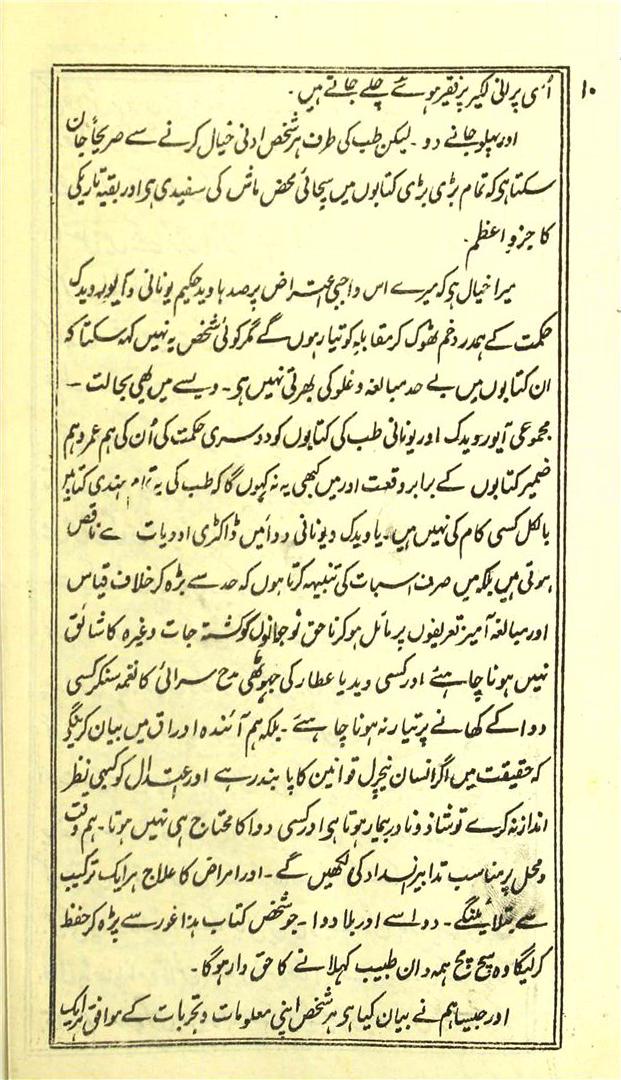 ۱۰
اُسی پرانی لکیر پر فقیر ہوئے چلے جاتے ہیں۔
اور پہلو جانے دو۔ لیکن طب کی طرف ہر شخص ادنی خیال کرنے سے صریحاً جان
سکتا ہو کہ تمام بڑی بڑی کتابوں میں سچائی محض ماش کی سفیدی ہو اور بقیہ تاریکی
کا جزو اعظم۔
میرا خیال ہو کہ میرے اس واجبی اعتراض پر صدہا وید حکیم یونانی و آیورویدک
حکمت کے ہمدرد خم ٹھوک کر مقابلہ کو تیار ہوں گے مگر کوئی شخص یہ نہیں کہہ سکتا کہ
ان کتابوں میں بے حد مبالغہ و غلو کی بھرتی نہیں ہو۔ ویسے میں بھی بحالت –
مجموعی آیورویدک اور یونانی طب کی کتابوں کو دوسری حکمت کی اُن کی ہم عمر و ہم
ضمیر کتابوں کے برابر وقعت اور میں کبھی یہ نہ کہوں گا کہ طب کی یہ تمام ہندی کتابیں
بالکل کسی کام کی نہیں ہیں۔ یا ویدک و یونانی دوائیں ڈاکٹری ادویات سے ناقص
ہوتی ہیں بلکہ میں صرف اسبات کی تنبیہہ کرتا ہوں کہ حد سے بڑہ کر خلاف قیاس
اور مبالغہ آمیز تعریفوں پر مائل ہو کر ناحق نوجوانوں کو کشتہ جات وغیرہ کا شائق
نہیں ہونا چاہئے اور کسی وید یا عطار کی جہوٹھی مدح سرائی کا نغمہ سنکر کسی
دوا کے کھانے پر تیار نہ ہونا چاہئے۔ بلکہ ہم آئندہ اوراق میں بیان کرینگے
کہ حقیقت میں اگر انسان نیچرل قوانین کا پابند رہے اور اعتدال کو کبھی نظر
انداز نہ کرے تو شاذ و نادر بیمار ہوتا ہو اور کسی دوا کا محتاج ہی نہیں ہوتا۔ ہم وقت
و محل پر مناسب تدابیر انسداد کی لکھیں گے۔ اور امراض کا علاج ہر ایک ترکیب
سے بتلائینگے۔ دوا سے اور بلا دوا۔ جو شخص کتاب ہذا غور سے پڑہ کر حفظ
کر لیگا وہ سچ مچ ہمہ دان طبیب کہلانے کا حق دار ہوگا۔
اور جیسا ہم نے بیان کیا ہو ہر شخص اپنی معلومات و تجربات کے موافق ہر ایک